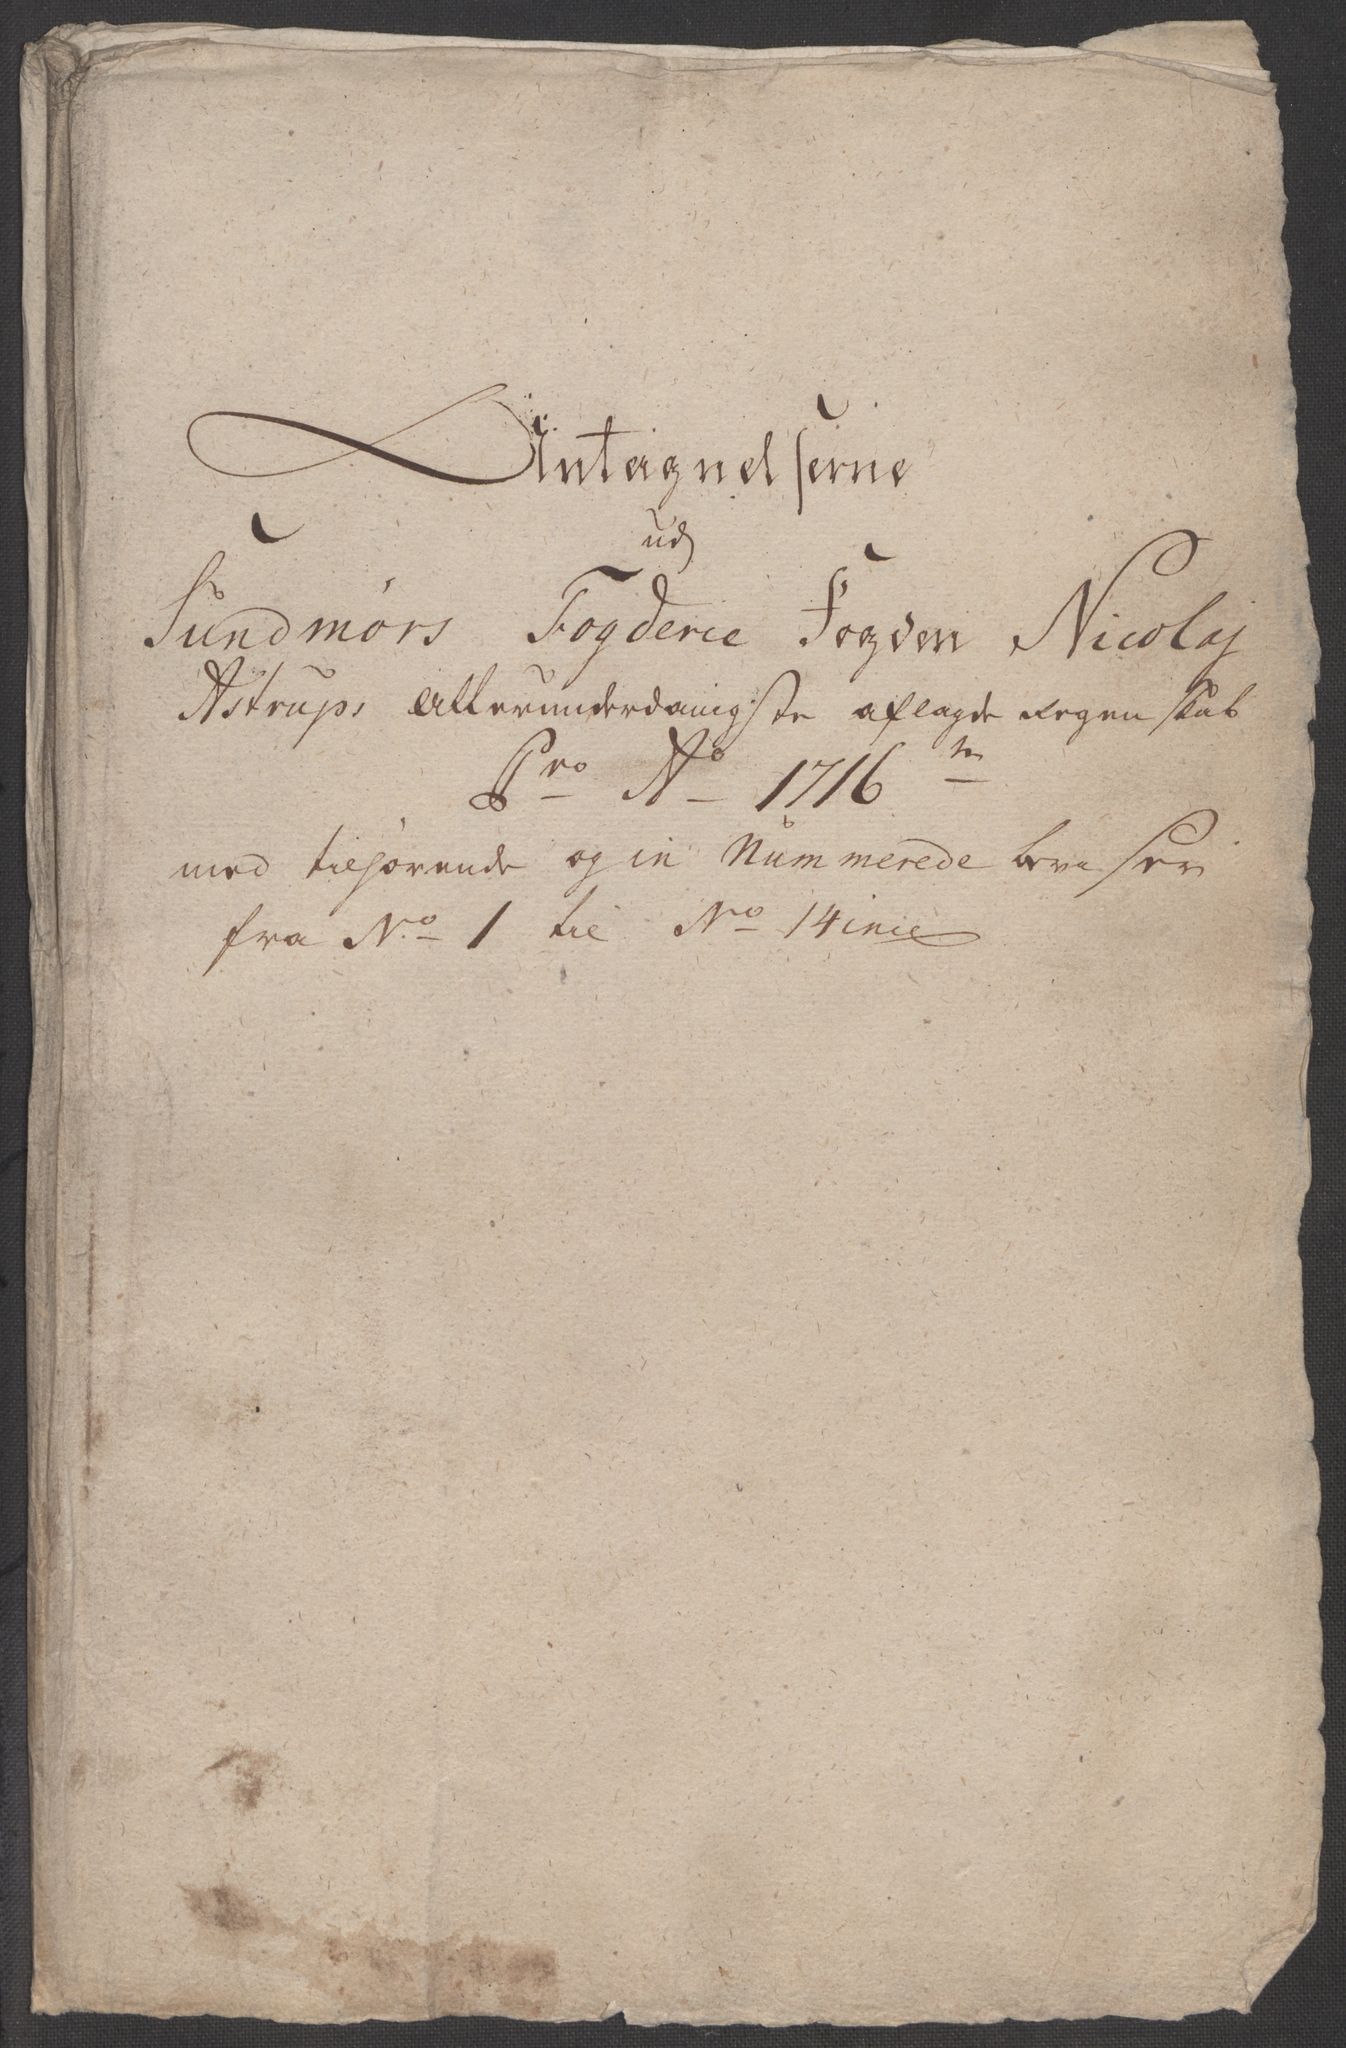 Antegnelserne
ud
Sundmørs Fogderie Fogden Nicolaj
Astrups allerunderdanigste aflagde Regenskab
Pro Ao 1716 tn
med tilhørende og in Nummerede beviser
fra No 1 til No 14 incl